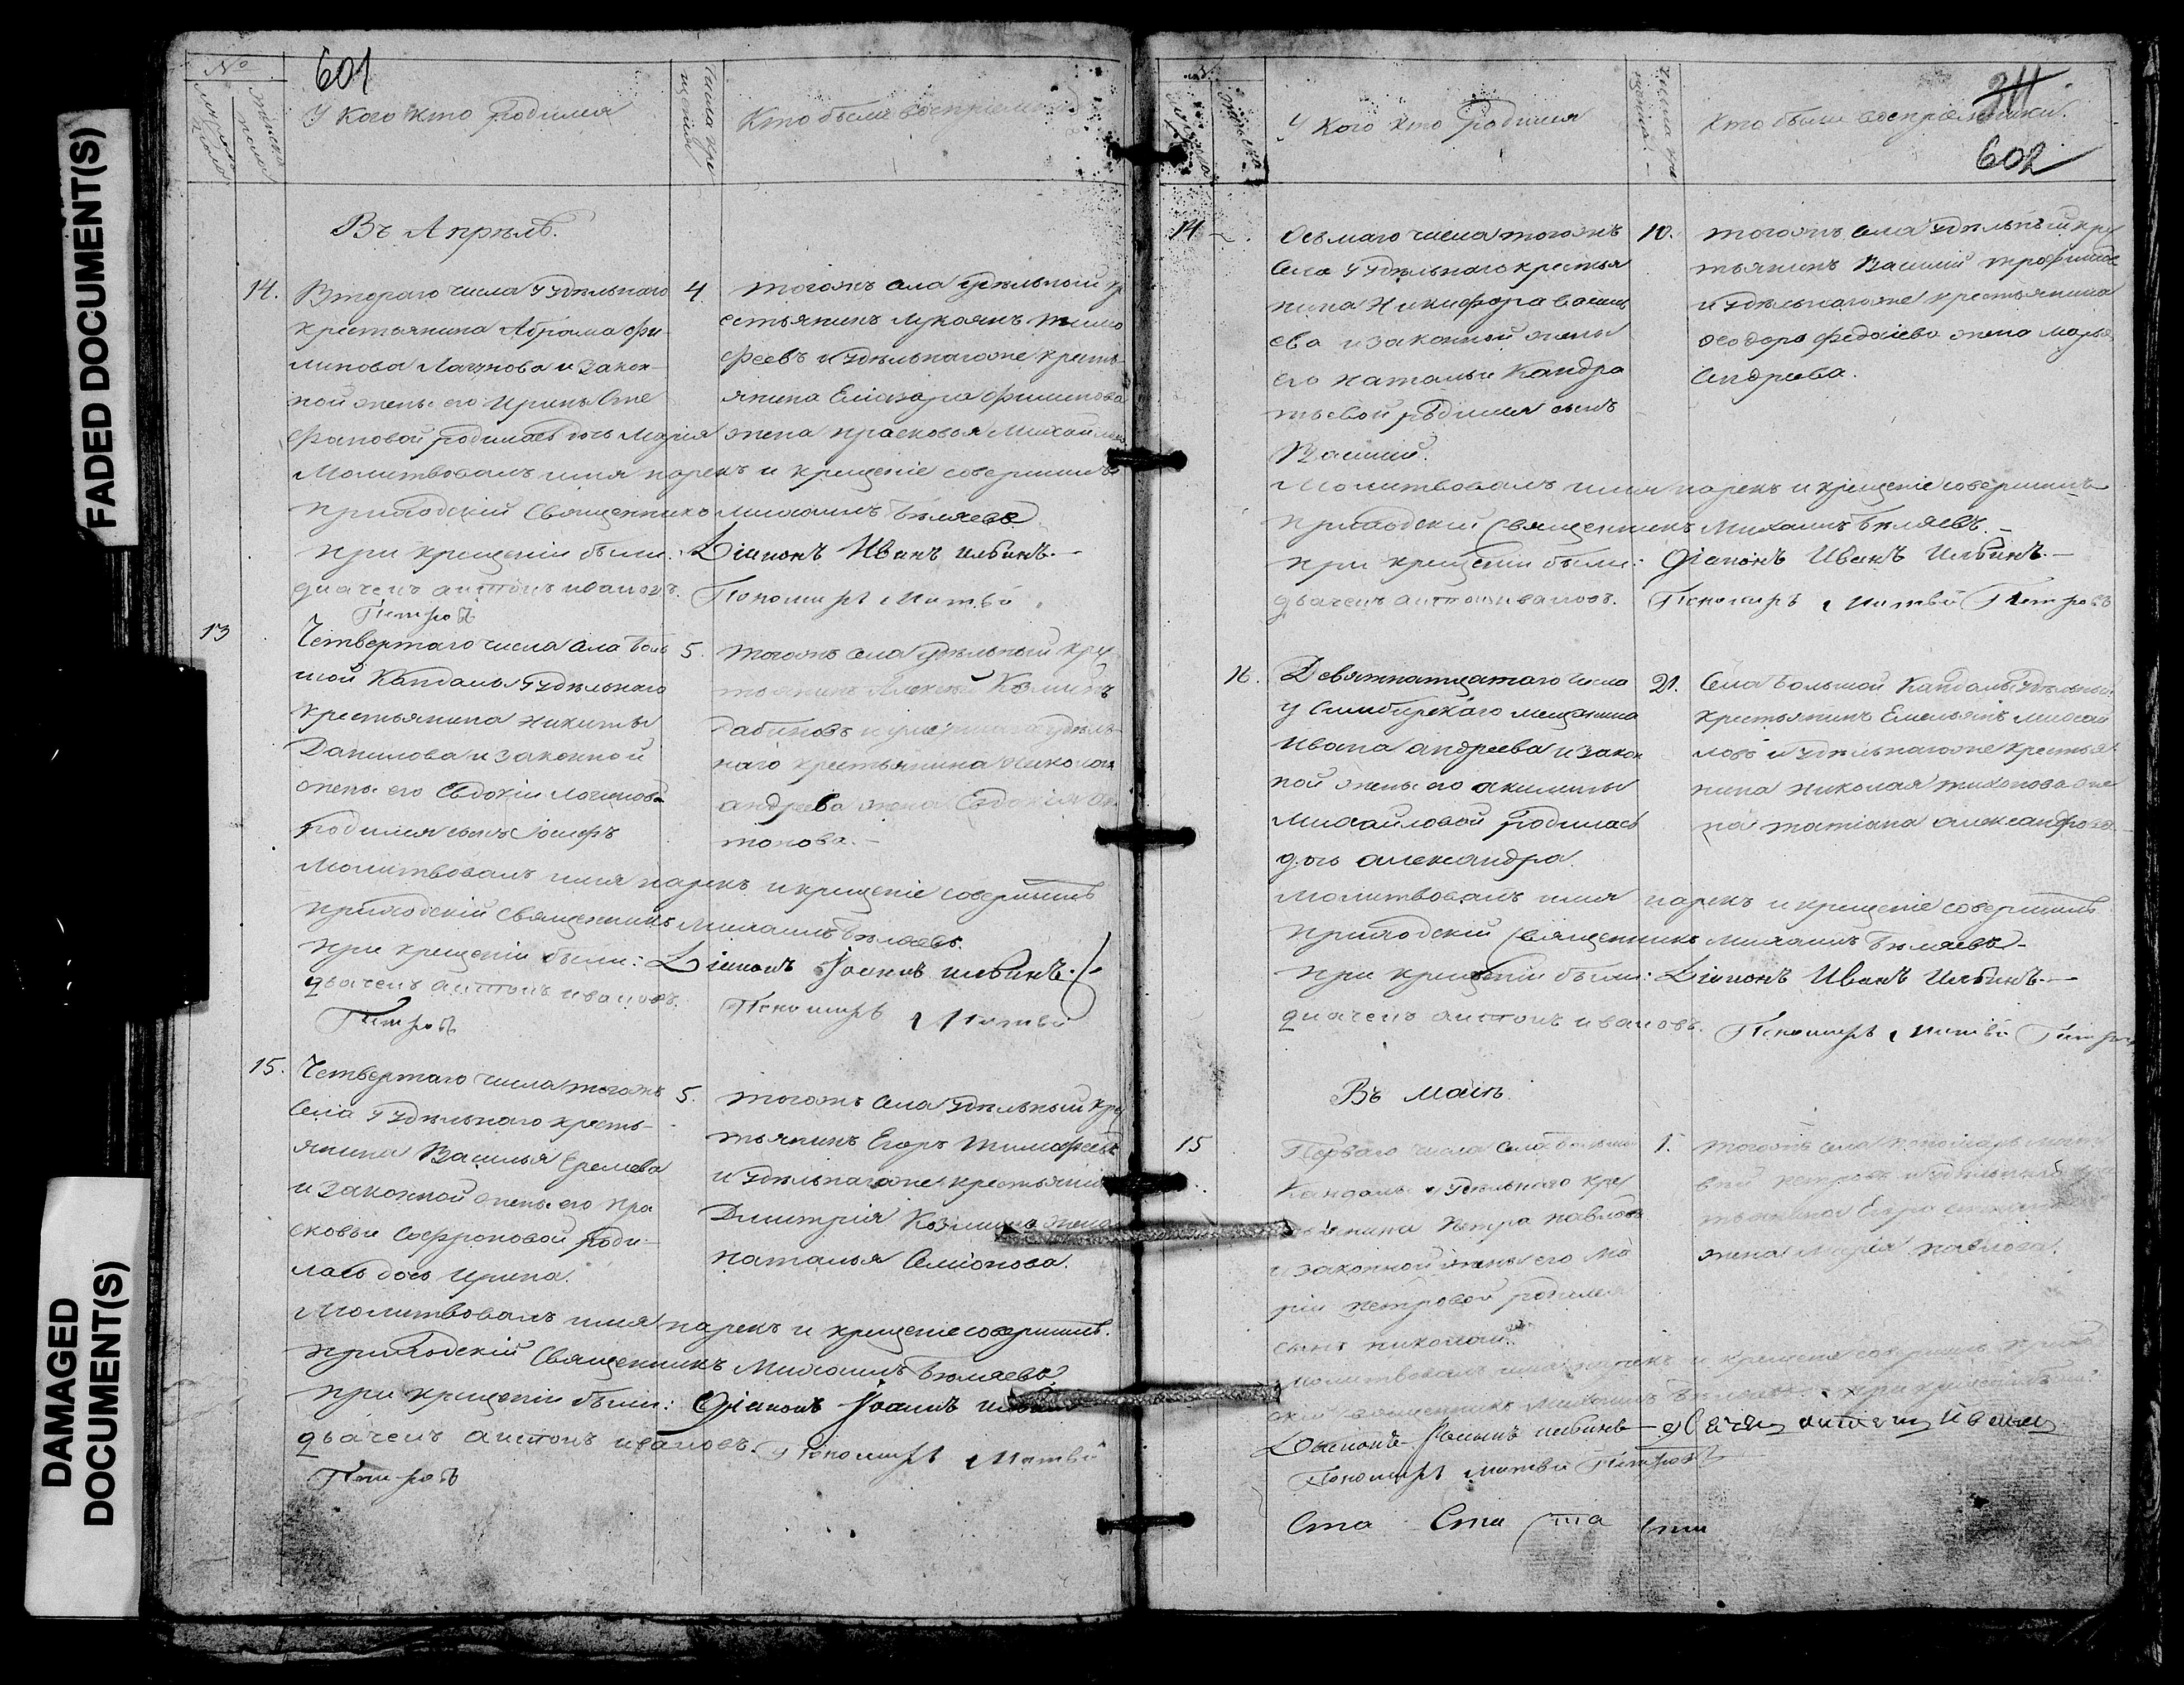 FADED DOCUMENT(S)
DAMAGED
DOCUMENT(S)
№
мужеска пола
женска пола
601
У Кого кто родился
числа крещенiя
Кто были воспрiемники
Въ Апрѣлѣ.
14.
Втораго числа у удѣльнаго
крестьянина Абрама Фи
липова и закон-
ной жены его Ирины Сте
фановой родилась дочь Марiя
4
тогожъ села удѣльный кр
естьянинъ Лукоянъ Тимо
феевъ и удѣльнагоже кресть
янина Елiазара Филипова
жена Прасковья Михайлова
Молитвовалъ имя нарекъ и крещенiе совершилъ
приходскiй Священникъ Михаилъ Бѣляевъ
при крещенiи были: Дiаконъ Иванъ Ильинъ.—
дьячекъ Антонъ Ивановъ. Пономарь Матвѣй
Петровъ
13
Четвертаго числа села Боль
шой Кандалы у удѣльнаго
крестьянина Никиты
Данилова и законной
жены его Евдокiи Логиновой
родился сынъ Iосифъ
5.
тогожъ села удѣльный крес
тьянинъ Алексѣй Козминъ
и удѣль
наго крестьянина Николая
Андреева жена Евдокiя Ан
тонова.—
Молитвовалъ имя нарекъ и крещенiе совершилъ
приходскiй Священникъ Михаилъ Бѣляевъ.
при крещенiи были: Дiаконъ Iоаннъ Ильинъ.
дьячекъ Антонъ Ивановъ. Пономарь Матвѣй
Петровъ
15.
Четвертаго числа тогожъ
села у удѣльнаго кресть-
янина Василья Еремеева
и законной жены его Пра
сковьи Софроновой роди-
лась дочь Ирина.
5.
тогожъ села удѣльный крес
тьянинъ Егоръ Тимофеевъ
и удѣльнагоже крестьянина
Димитрiя Козмина жена
Наталья Семiонова.
Молитвовалъ имя нарекъ и крещенiе совершилъ.
приходскiй Священникъ Михаилъ Бѣляевъ
при крещенiи были: Дiаконъ Iоаннъ Ильинъ
дьячекъ Антонъ Ивановъ. Пономарь Матвѣй
Петровъ
№
У Кого кто родился
числа крещенiя
Кто были воспрiемники.
311
602
14
Осьмаго числа тогожъ
села у удѣльнаго крестья
нина Никифора Василь
ева и законной жены
его Натальи Кандра
тьевой родился сынъ
Василiй.
10.
тогожъ села удѣльный крес
тьянинъ Василiй Трофимовъ
и удѣльнагоже крестьянина
Ѳеодора Федосiева жена Марья
Андреева.
Молитвовалъ имя нарекъ и крещенiе совершилъ
приходскiй Священникъ Михаилъ Бѣляевъ.—
при крещенiи были: Дiаконъ Иванъ Ильинъ.—
дьячекъ Антонъ Ивановъ. Пономарь Матвѣй Петровъ
16.
Девятнатцатаго числа
у Симбирскаго мещанина
Ивана Андреева и закон
ной жены его Акилины
Михайловой родилась
дочь Александра.
21.
Села Большой Кандалы удѣльный
крестьянинъ Емельянъ Михай
ловъ и удѣльнагоже крестья
нина Николая Тихонова же
на Татiана Александрова
Молитвовалъ имя нарекъ и крещенiе совершилъ
приходскiй Священникъ Михаилъ Бѣляевъ.
при крещенiи были: Дiаконъ Иванъ Ильинъ.—
дьячекъ Антонъ Ивановъ. Пономарь Матвѣй Петровъ
Въ Маiѣ
15
Перваго числа села Большой
Кандалы у удѣльнаго крес
тьянина Петра Павлова
и законной жены его Ма
рiи Петровой родился
сынъ Николай.
1.
тогожъ села пономарь Мат
вѣй Петровъ и удѣльнаго крес
тьянина Егора
жена Марiя Павлова.
Молитвовалъ имя нарекъ и крещенiе совершилъ прихо
дскiй священникъ Михаилъ Бѣляевъ. при крещенiи были
Дьяконъ Iоаннъ Ильинъ — дьячекъ Антонъ Ивановъ
Пономарь Матвѣй Петровъ